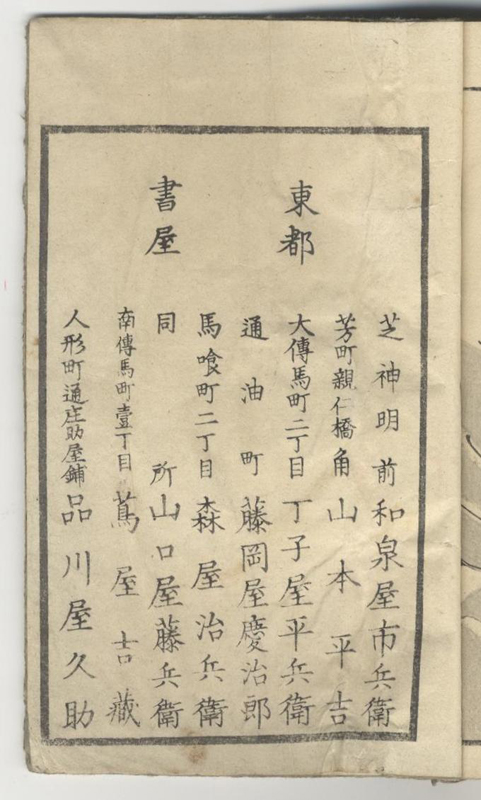 東都
書屋
芝神明前 和泉屋市兵衛
芳町親仁橋角 山本平吉
大傳馬町二丁目 丁子屋平兵衛
通油町 藤岡屋慶治郎
馬喰町二丁目 森屋治兵衛
同所 山口屋藤兵衛
南傳馬町壹丁目 蔦屋吉藏
人形町通庄助屋鋪 品川屋久助